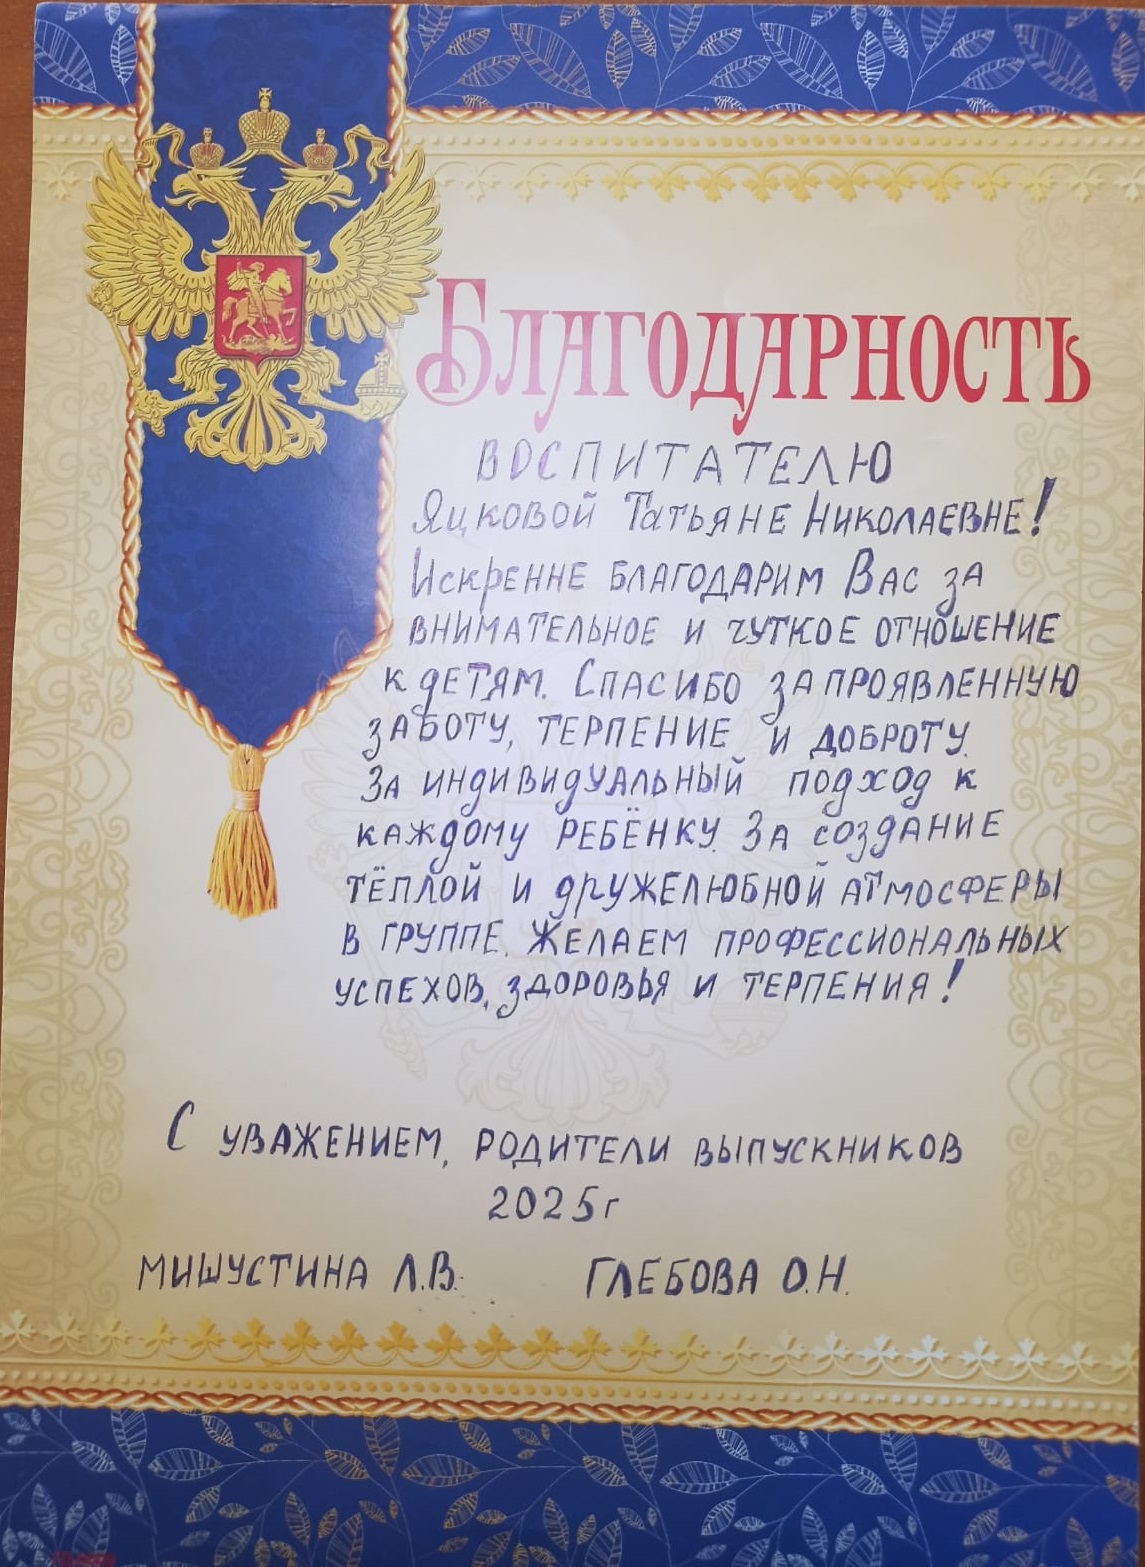 Благодарность
воспитателю
Яцковой Татьяне Николаевне!
Искренне благодарим Вас за
внимательное и чуткое отношение
к детям. Спасибо за проявленную
заботу, терпение и доброту.
За индивидуальный подход к
каждому ребёнку. За создание
тёплой и дружелюбной атмосферы
в группе. Желаем профессиональных
успехов, здоровья и терпения!
С уважением, родители выпускников
2025г
Мишустина Л.В. Глебова О.Н.